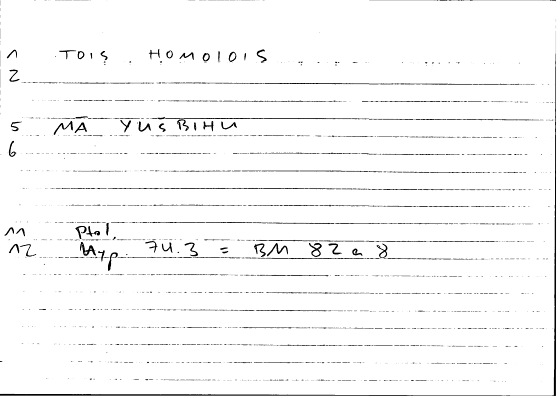 1 TOIS HOMOIOIS
2
5 MĀ YUŠBIHU
6
11 Ptol.
12 Hyp. 74.3 = BM 82 a 8